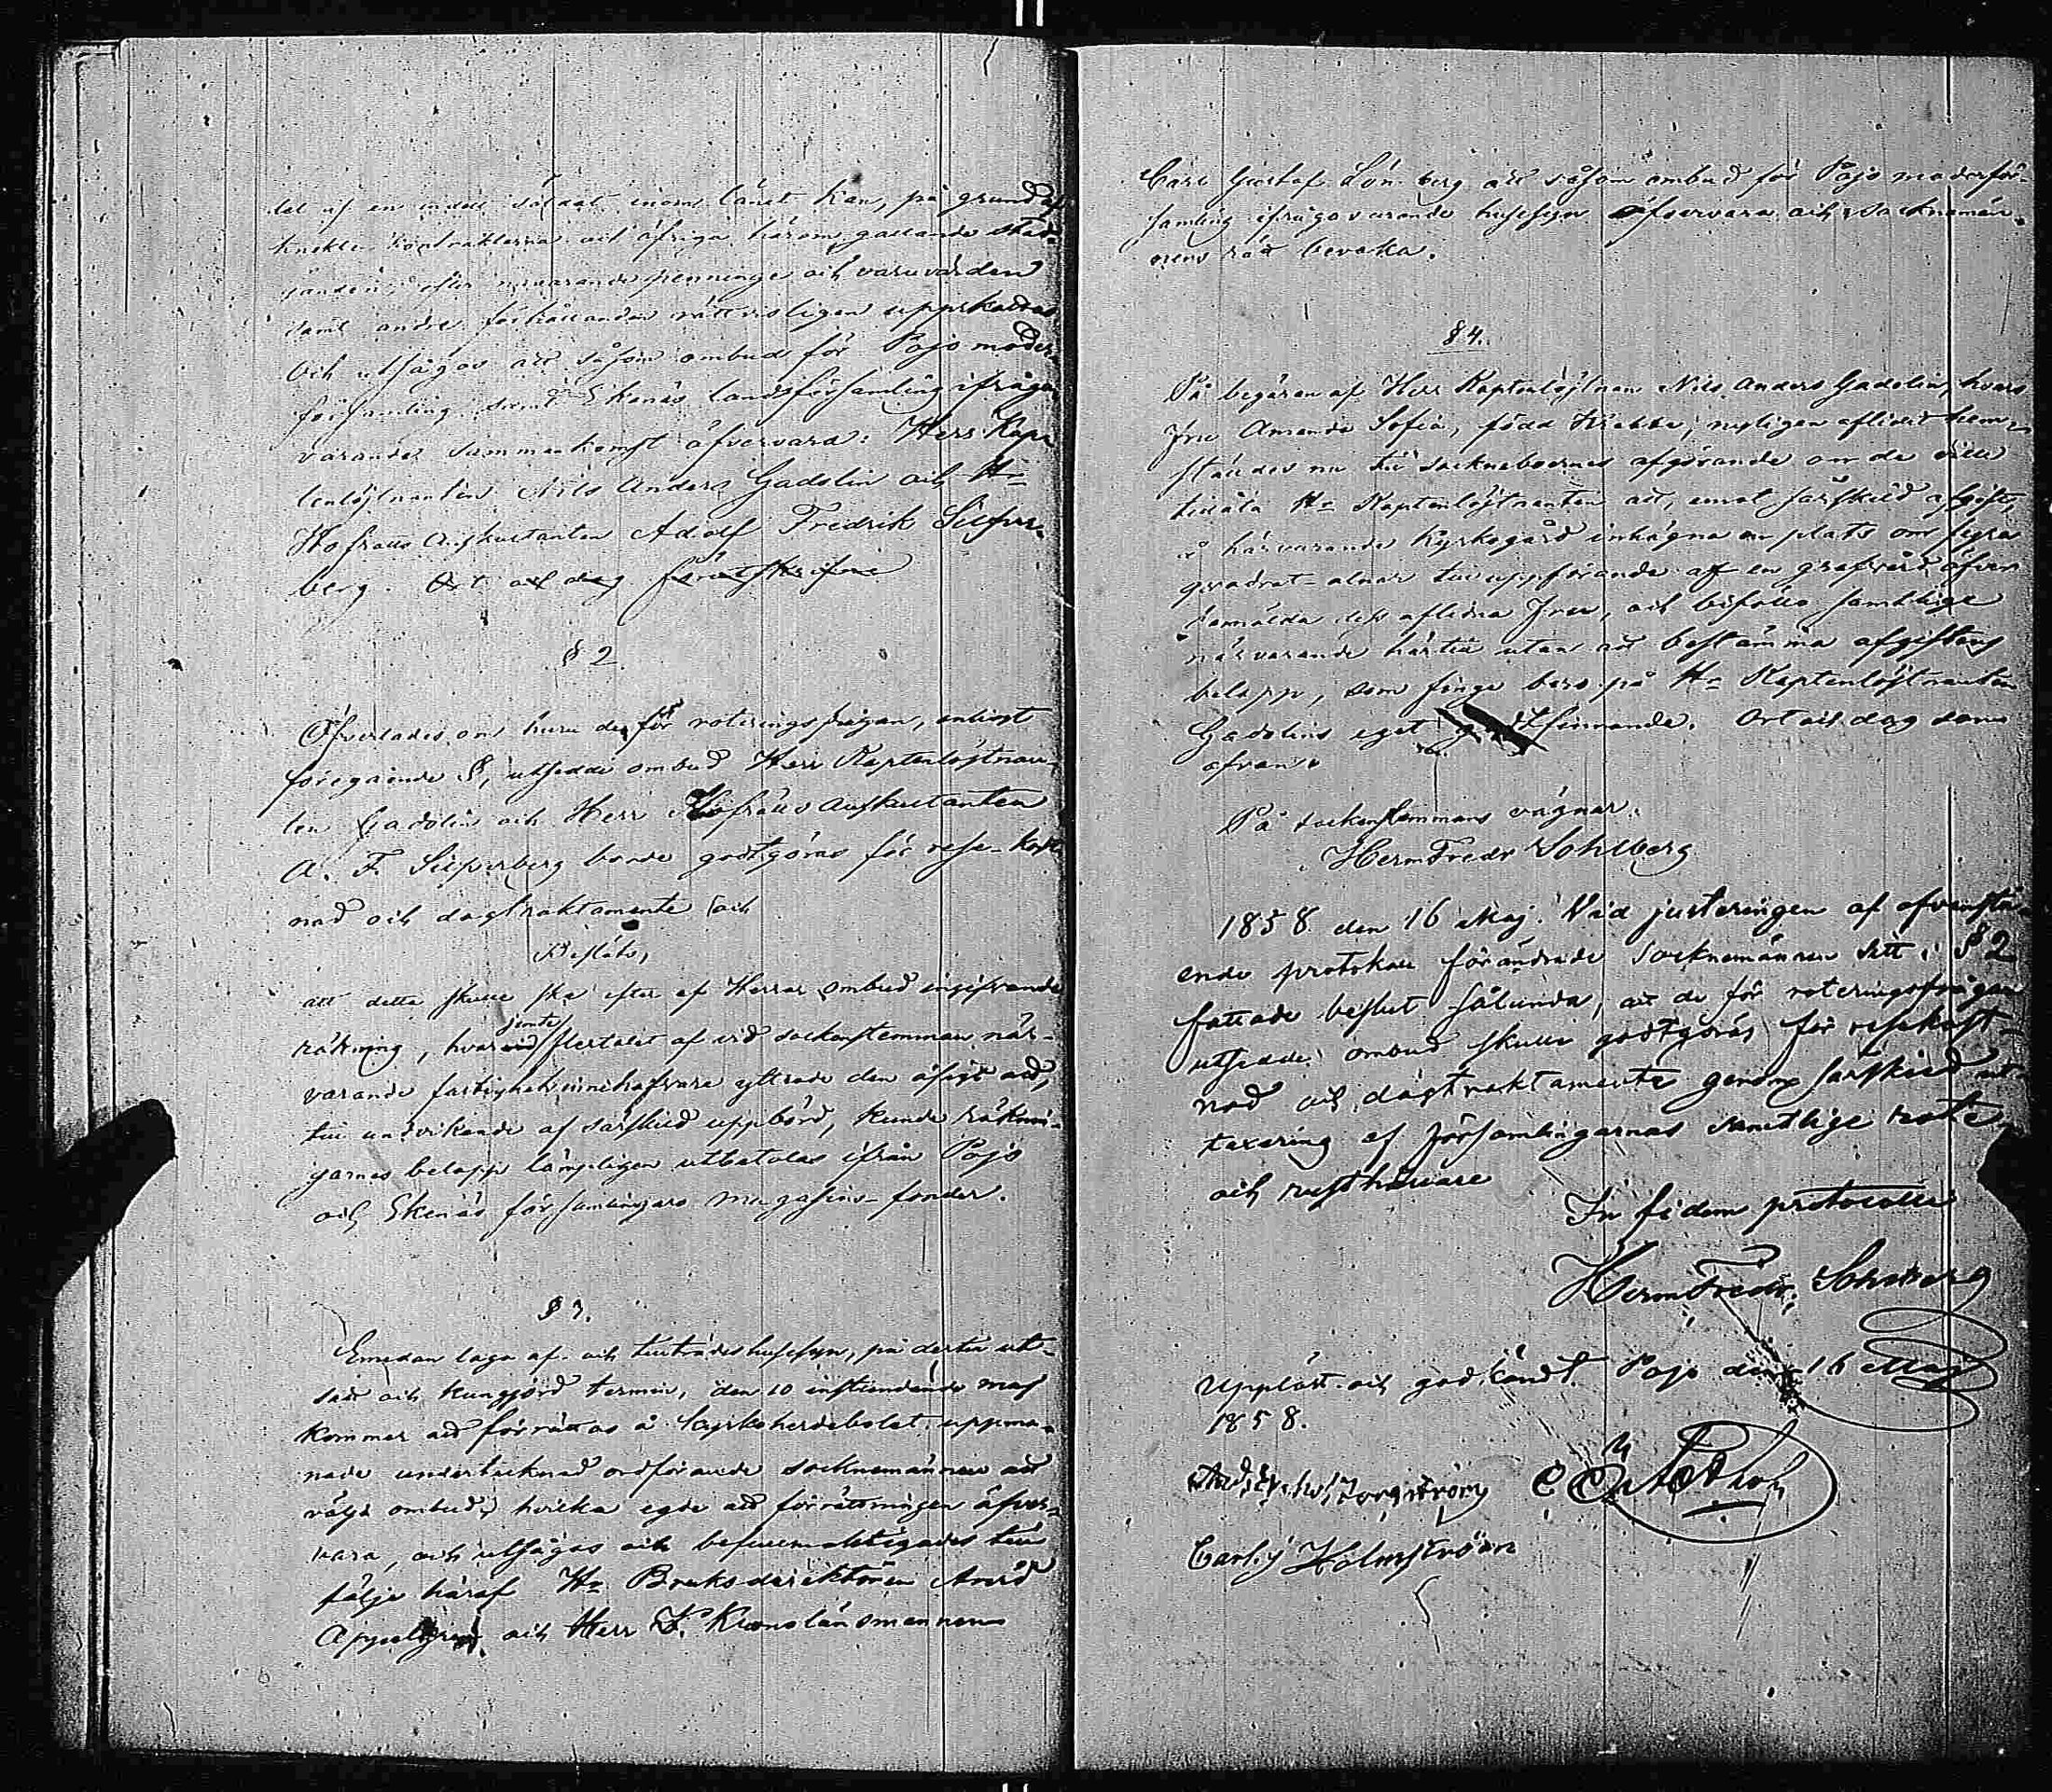 tal af en indelt soldat inom länet kan, på grund af
knekte kontrakterna och öfriga härom gällande stad-
ganden, efter nuvarande penninge och varuvärden
samt andre förhållanden rättvisligen uppskattas
Och utsågos att såsom ombud för Pojo moder-
församling samt Ekenäs landsförsamling ifråga-
varande sammankomst öfvervara: Herr Kap-
tenlöjtnanten Nils Anders Gadolin och Hr
Hofrätts Auskultanten Adolf Fredrik Silfver-
berg. Ort och dag
§ 2.
Öfverlades om huru de för roteringsfrågan, enligt
föregående §, utsedde ombud Herr Kaptenlöjtnan-
ten Gadolin och Herr Hofrätts Auskultanten
A. F. Silfverberg borde godtgöras för rese-kost-
nad och dagtraktamente och
Beslöts,
att detta skulle ske efter af Herrar ombud ingifvande
räkning, hvarvid jemte flertalet af vid sockenstemman när-
varande fastighets innehafvare yttrade den åsigt att,
till undvikande af särskild uppbörd, kunde räknin-
garnes belopp lämpligen utbetalas ifrån Pojo
och Ekenäs församlingars magasins-fonder.
§ 3.
Emedan laga af- och tillträdeshusesyn, på dertill ut-
satt och kungjord termin, den 10 instundande maj
kommer att förrättas å Kyrkoherdebolet uppma-
nade undertecknad ordförande socknemännen att
välja ombud, hvilka egde att förrättningen öfver-
vara, och utsågos och befullmäktigades till
följe häraf Hr Bruksdirektören Arvid
Appelgren och Herr T. Kronolänsmannen
Carl Gustaf Lönnberg att såsom ombud för Pojo moderför-
samling ifrågavarande husesyn öfvervara och sockneman-
nens rätt bevaka.
§ 4.
På begäran af Herr Kaptenlöjtnan Nils Anders Gadolin, hvars
Fru Amanda Sofia, född Krabbe, nyligen aflidit hem-
stäldes nu till sockneboernes afgörande om de ville
tillåta Hr Kaptenlöjtnanten att, emot särskild afgift,
å härvarande kyrkogård inhägna en plats om fyra
qvadrat-alnar till uppförande af en grafvård öfver
bemälda dess aflidna Fru, och biföllo samtlige
närvarande härtill utan att bestämma afgiftens
belopp, som finge bero på Hr Kaptenlöjtnanten
Gadolins eget godtfinnande. Ort och dag som
ofvan.
På sockenstemmans vägnar:
Herm Fredr Sohlberg
1858 den 16 Maj. Vid justeringen af ofvanstå-
ende protokoll förändrade socknemännen sitt i § 2
fattade beslut sålunda, att de för roteringsfrågan
utsedde ombud skulle godtgöras för resekost-
nad och dagtraktamente genom särskild ut-
taxering af församlingarnas samtlige rote-
och rusthållare
In fidem protocolli
Herm Fredr: Sohlberg
Uppläst och godkändt. Pojo den 16 Maj
1858.
Carl J Holmström